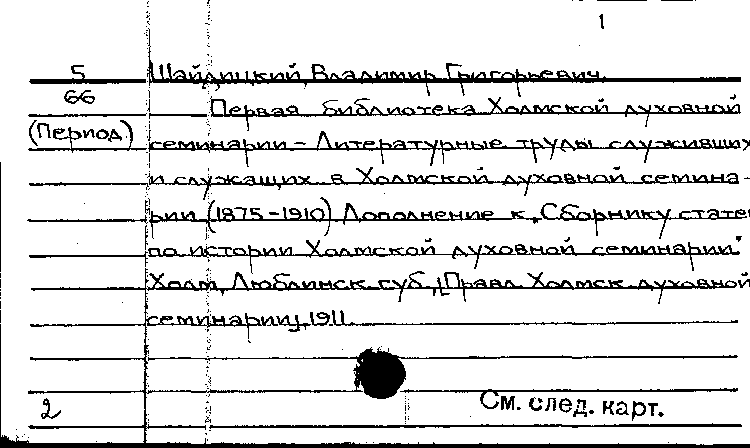 1
5 Шайдицкий, Владимир Григорьевич.
66 Первая библиотека Холмской духовной
(Период) семинарии - Литературные труды служивших
и служащих в Холмской духовной семина-
рии (1875-1910) Дополнение к „Сборнику статей
по истории Холмской духовной семинарии"
Холм, Люблинск. губ., [Правл. Холмск. духовной
семинарии], 1911.
2 См. след. карт.